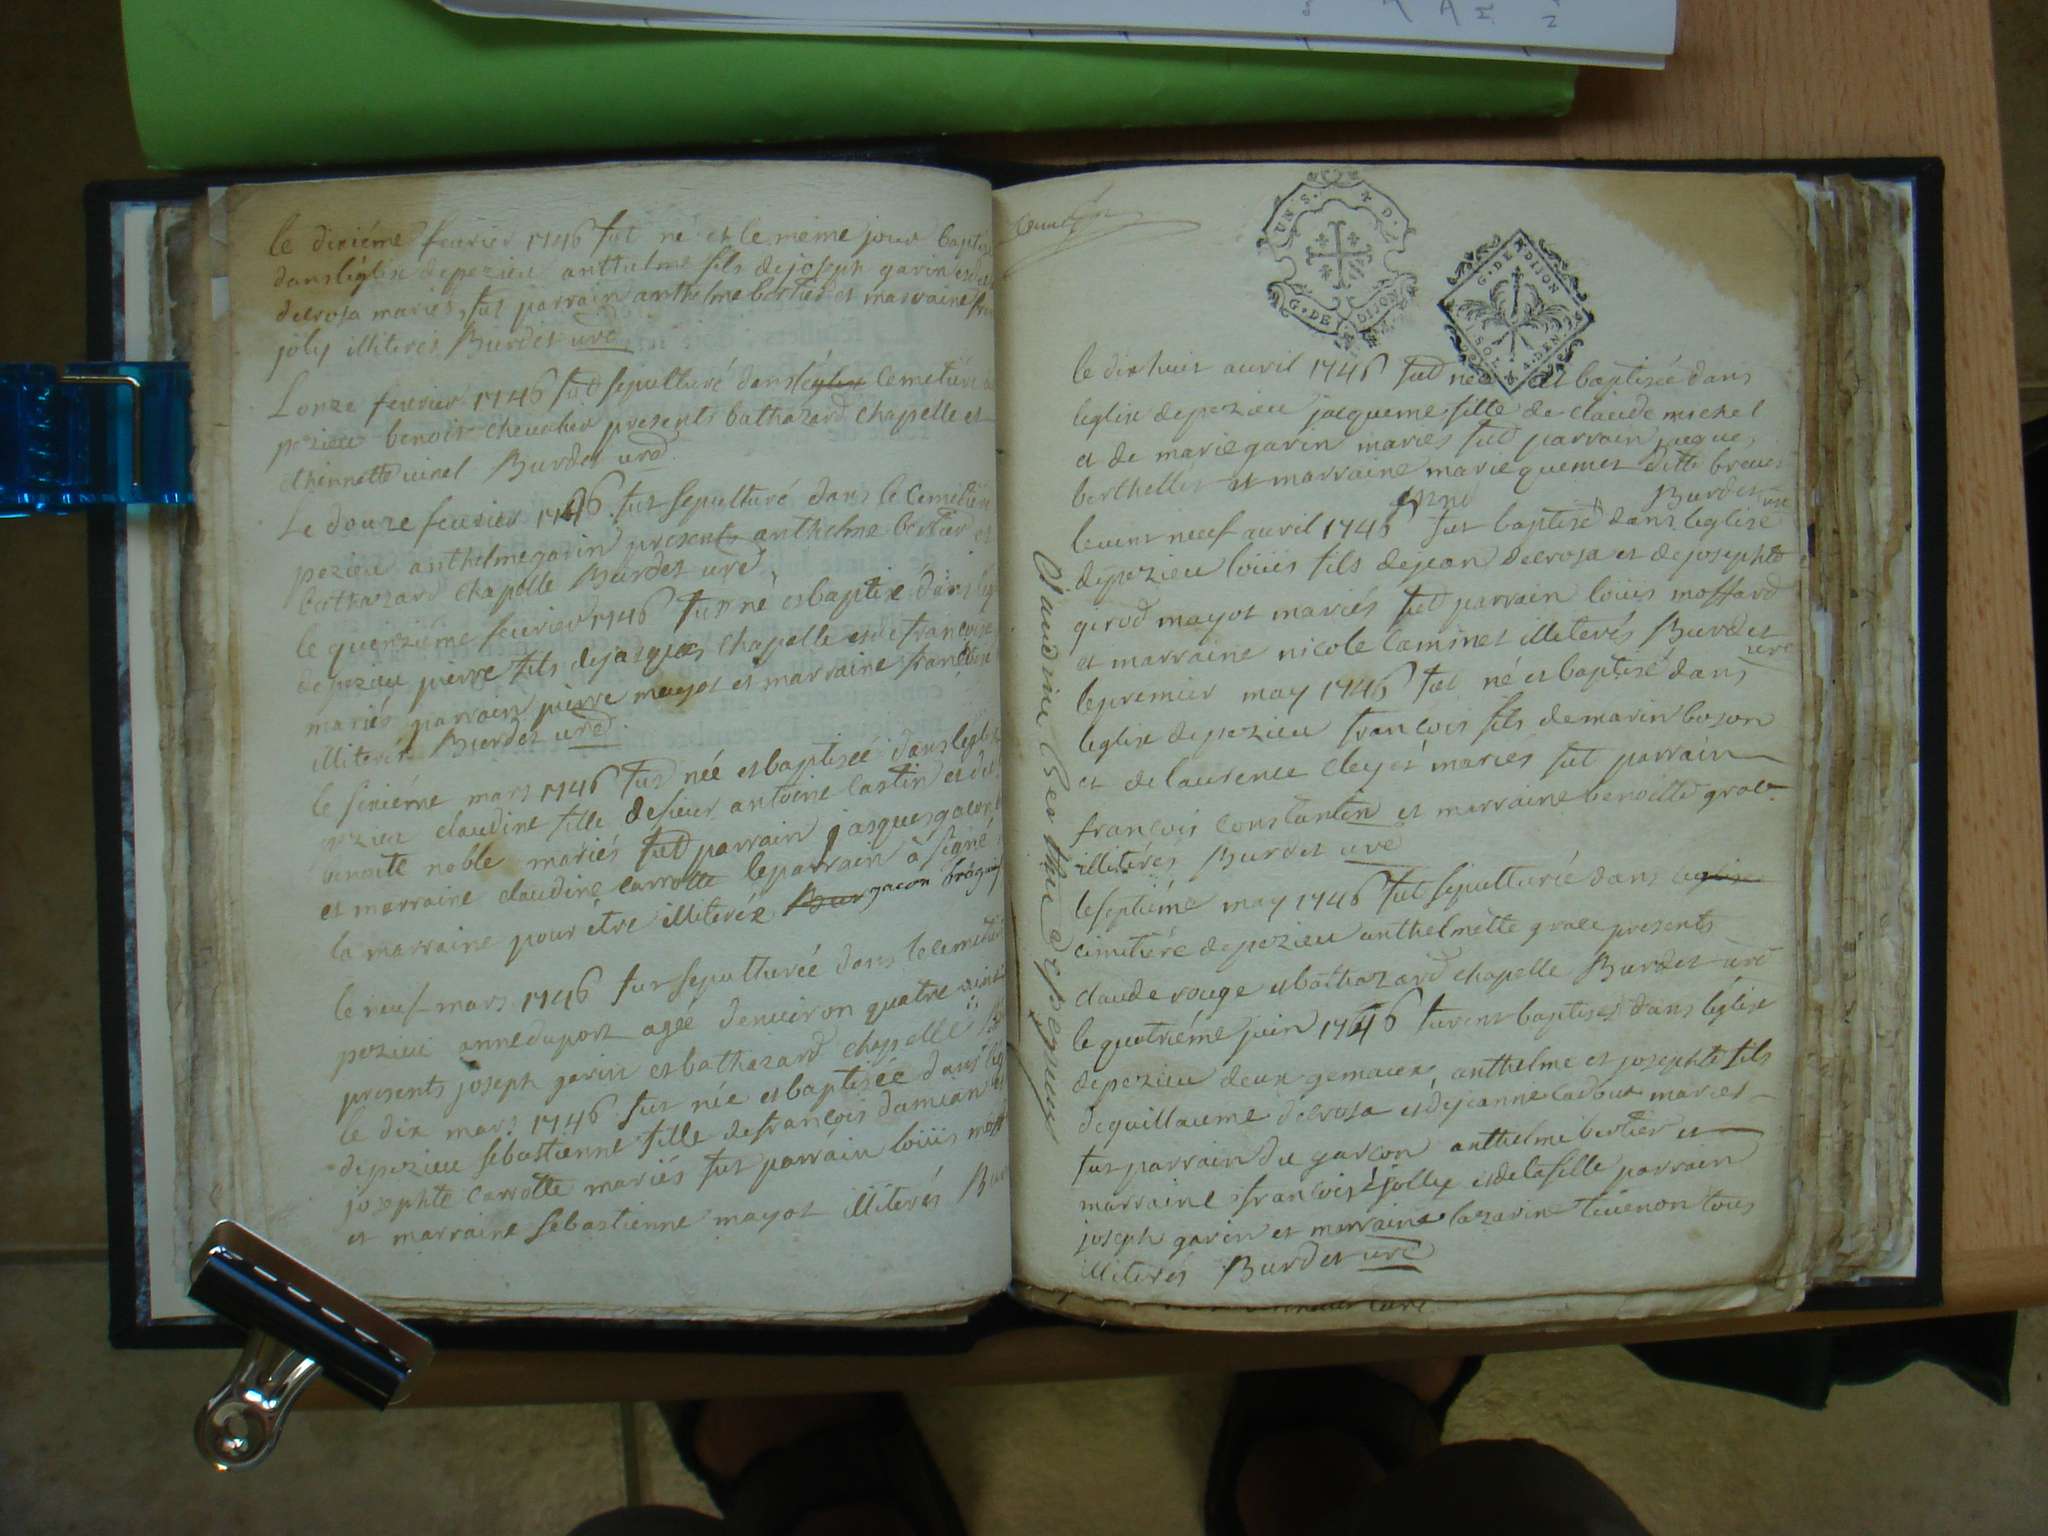 le dixiéme feurier 1746 fut né et le même jour bapti
dans léglise depezieu anthelme fils dejoseph garin et de
decrosa mariés, fut parrain anthelme bertier et marraine fran
joly illiterés Burdet uré
Lonze feurier 1746 fut sepulturé dans léglise cemetiere
pezieu benoit chevalier presents bathazard chapelle et
ethiennette Burdet uré
Le douze feurier 1746 fut sepulturé dans le cemetiere
pezieu anthelme garin presents anthelme bertier et
bathazard chapelle Burdet uré
le quenzieme feurier 1746 fut né et baptisé dans leg
depezieu pierre fils dejasques chapelle et de françoise
mariés parrain pierre mayot et marraine
illiterés Burdet uré
le sixiéme mars 1746 fut née et baptisée dans leglis
pezieu claudine fille desieur antoine castin et de
benoite noble mariés fut parrain jasques
et marraine claudine carrotte leparrain à signé
la marraine pour étre illiterée Bur
le neuf mars 1746 fut sepulturée dans le cemetier
pezieu anne duport agée denuiron quatre uint
presents joseph garin et bathazard chapelle B
le dix mars 1746 fut née et baptisée dans leg
depezieu sebastienne fille defrançois damian et
josephte carrotte mariés fut parrain loüis moff
et marraine sebastienne mayot illiterés Bur
UN S. R D.
G. DE DIJON
G. DE DIJON
SOL 4. DEN
le dixhuit auril 1746 fut née et baptisée dans
leglise depezieu jacqueme fille de claude michel
et de marie garin mariés fut parrain jaques
berthellet et marraine marie guemet ditte breuet
Burdet uré
leuint neuf auril 1746 fut baptisé dans leglise
depezieu loüis fils dejean decrosa et dejosephte
girod mayot mariés fut parrain loüis moffard
et marraine nicole caminet illiterés Burdet
uré
lepremier may 1746 fut né et baptisé dans
leglise depezieu françois fils demarin boson
et delaurence cleyet mariés fut parrain
françois constantin et marraine benoitte grale
illiterés Burdet uré
leseptiéme may 1746 fut sepulturée dans leglise
cimitiére depezieu anthelmette grale presents
claude rouge et bathazard chapelle Burdet uré
le quatriéme juin 1746 furent baptisés dans léglise
depezieu deux gemaux, anthelme et josephte fils
deguillaume decrosa et dejeanne cadoux mariés
fut parrain du garcon anthelme bertier et
marraine françoise jollix et de la fille parrain
joseph garin et marraine lazarine teuenon tous
illiterés Burdet uré